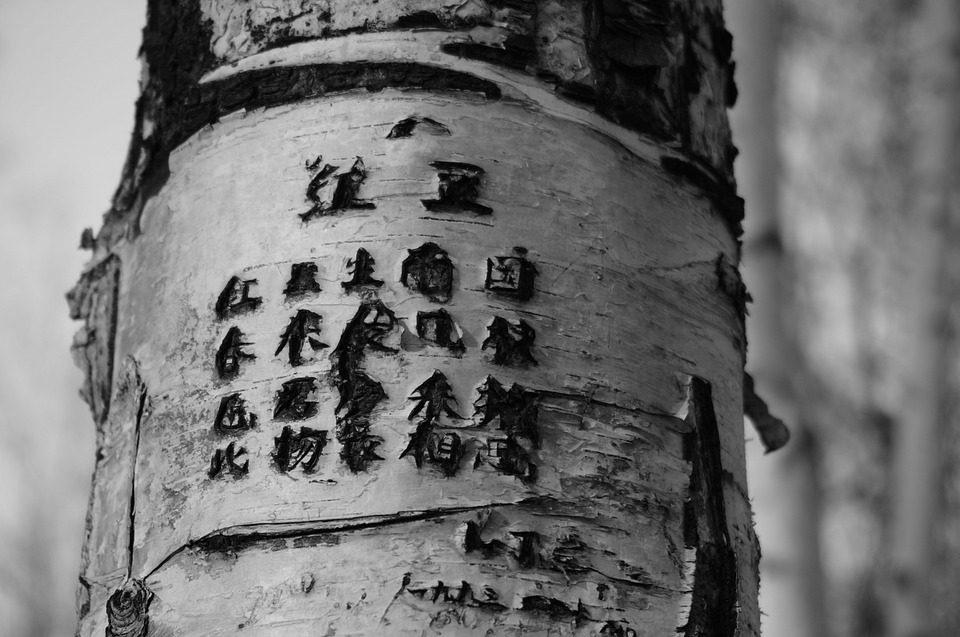 红豆
红豆生南国
春来发几枝
愿君多采撷
此物最相思
一九九